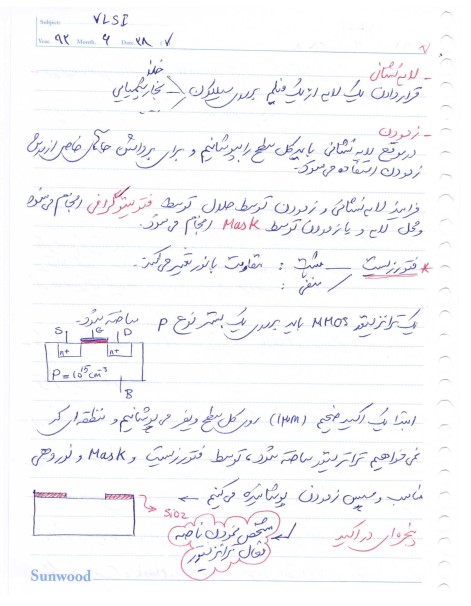 Subject: VLSI
Year. ۹۲ Month. ۶ Date. ۲۸
۷
- لایه نشانی
قرار دادن یک لایه از یک فیلم بر روی سیلیکون
خلأ
بخار شیمیایی
- زدودن
در موقع لایه نشانی باید کل سطح را بپوشانیم و برای برداشتن جاهای خاص از روش
زدودن استفاده می‌شود.
فرایند لایه نشانی و زدودن توسط حلال توسط فتولیتوگرافی انجام می‌شود
و محل لایه و یا زدودن توسط Mask انجام می‌شود.
* فتورزیست
مثبت : مقاومت با نور تغییر می‌کند.
منفی :
یک ترانزیستور NMOS باید بر روی یک بستر نوع P
ساخته شود.
S G D
n+ n+
P = 10^15 cm^-3
B
ابتدا یک اکسید ضخیم (1μm) روی کل سطح ویفر می‌پوشانیم و منطقه‌ای که
نمی‌خواهیم ترانزیستور ساخته شود، توسط فتورزیست و Mask و نوردهی
مناسب و سپس زدودن پوشانده می‌کنیم ←
پنجره‌ای در اکسید
SiO2
مشخص نمودن ناحیه
فعال ترانزیستور
Sunwood